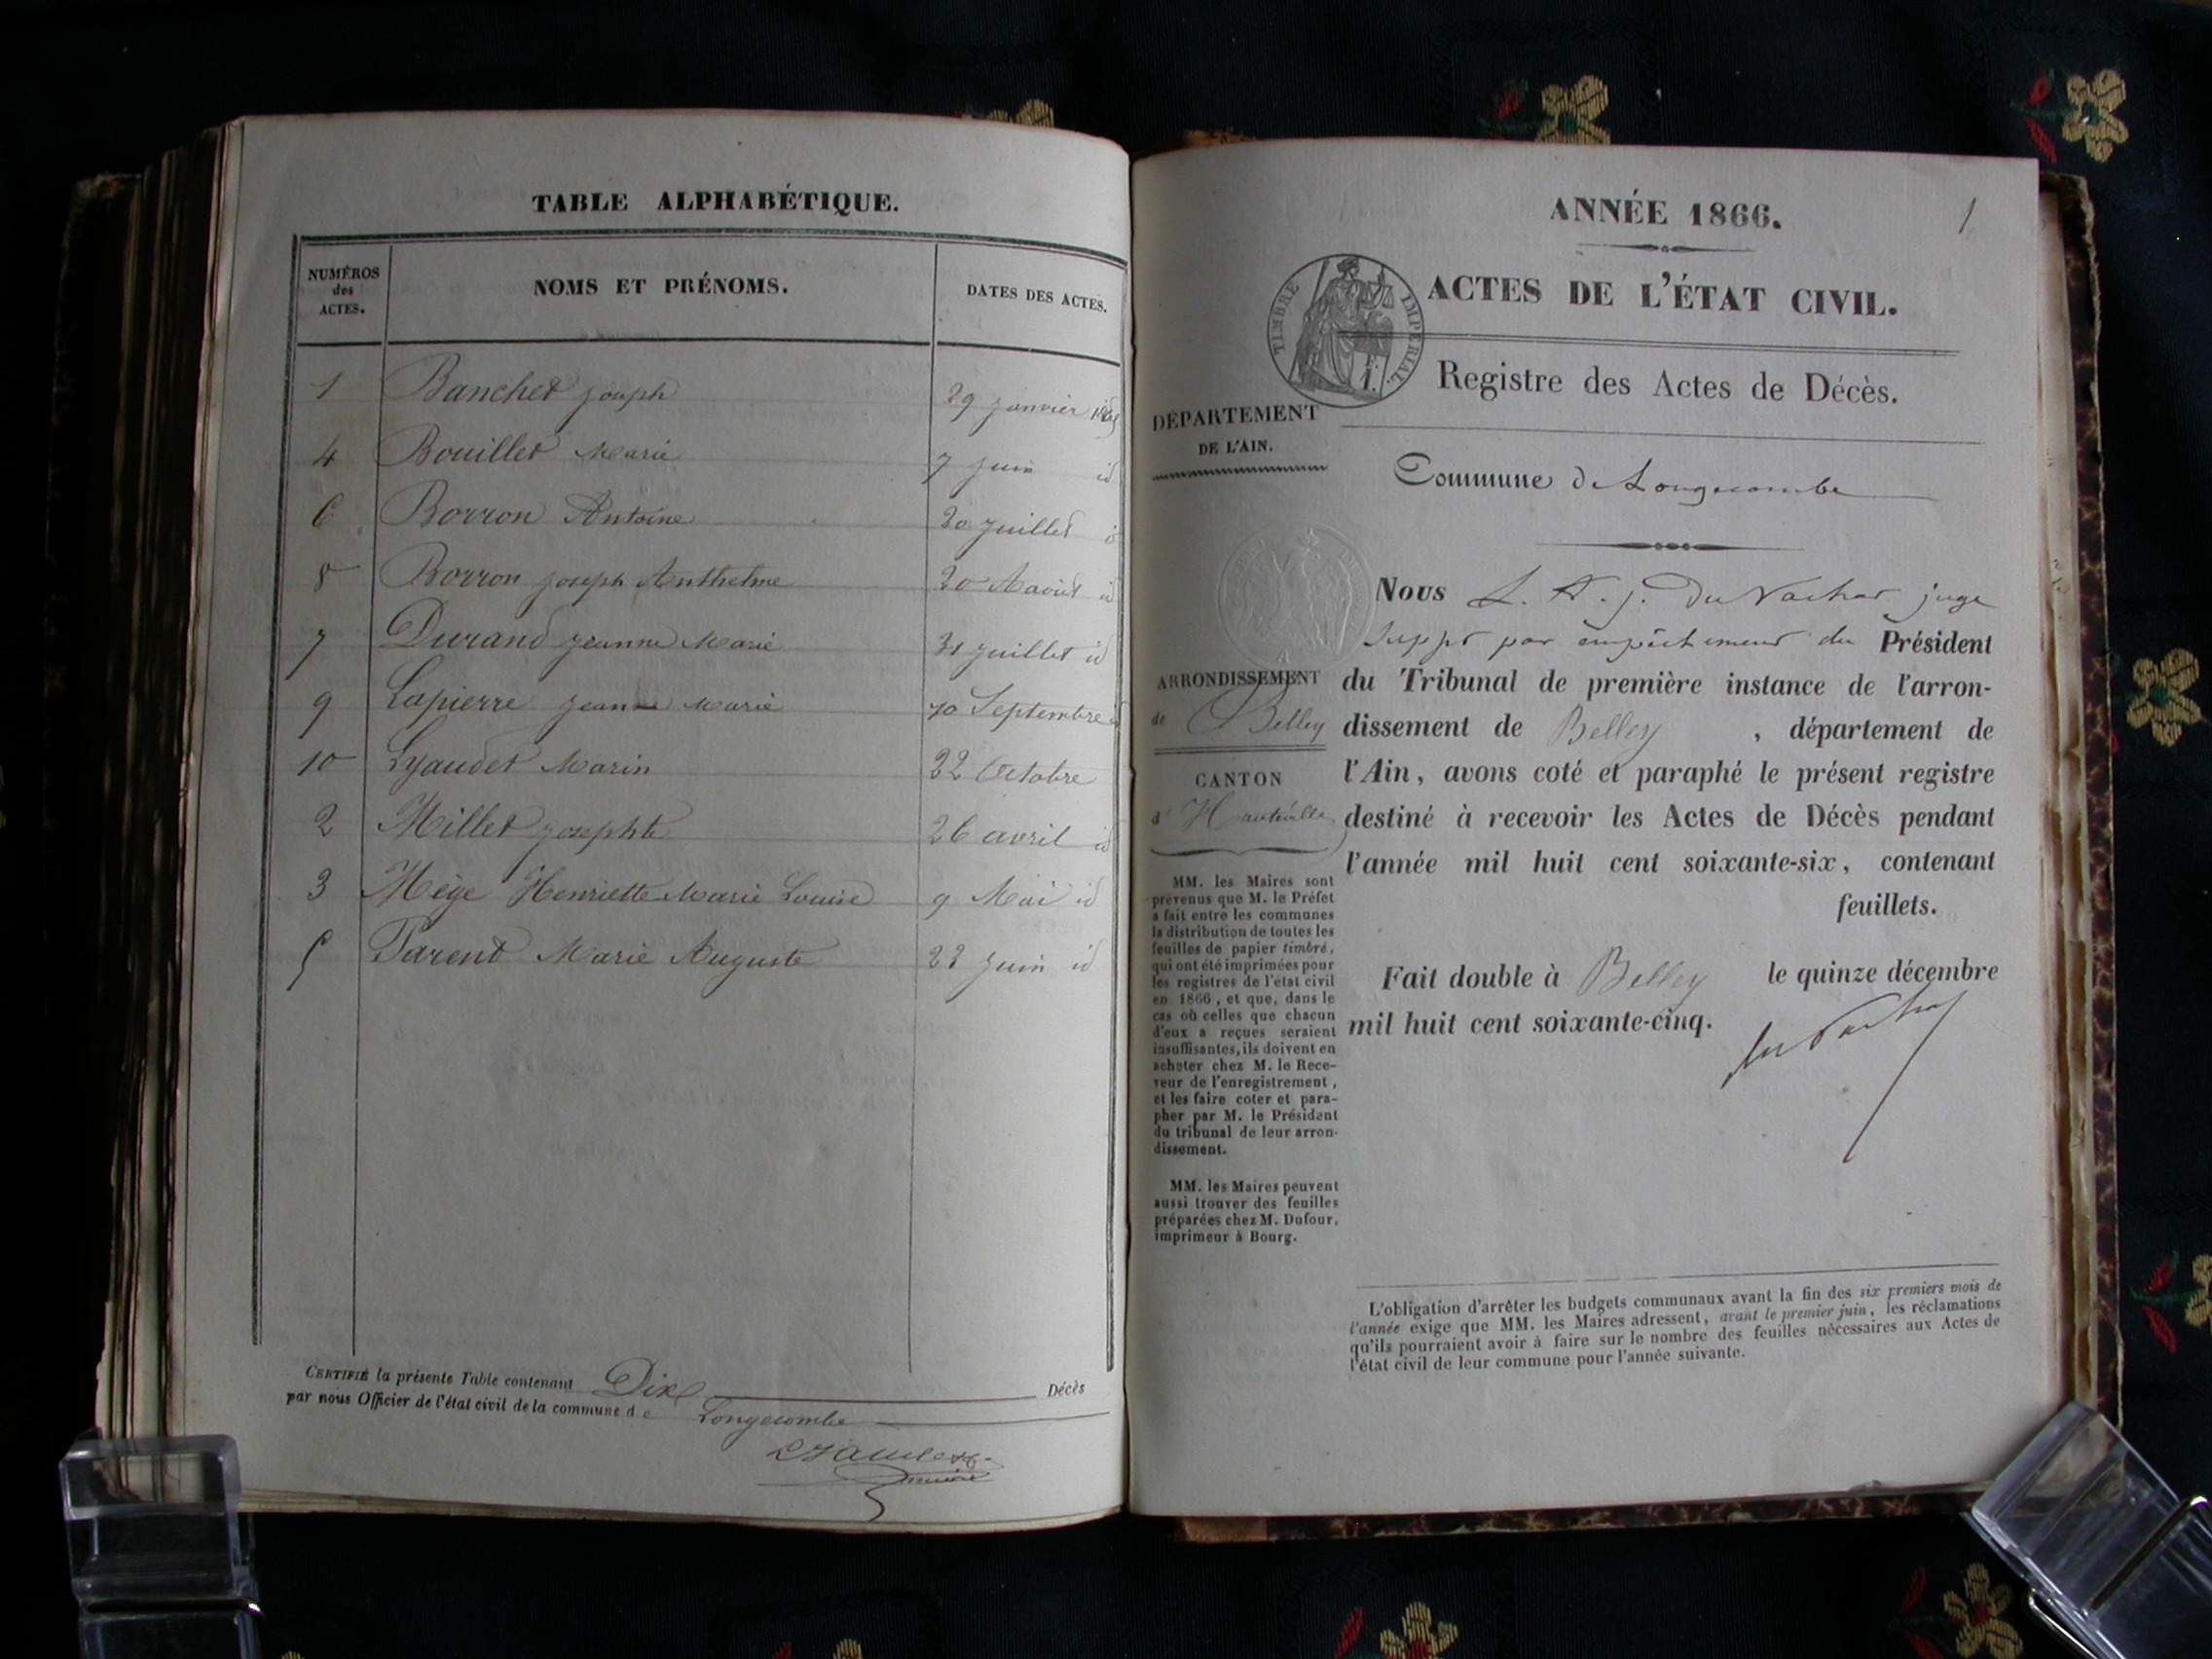 TABLE ALPHABÉTIQUE.
NUMÉROS des ACTES.
NOMS ET PRÉNOMS.
DATES DES ACTES.
1 Banchet Joseph 29 Janvier 1865
4 Bouillet Marie 7 Juin id
6 Borron Antoine 20 Juillet id
8 Borron Joseph Anthelme 20 Aaout id
7 Durand Jeanne Marie 31 Juillet id
9 Lapierre Jeanne Marie 10 Septembre id
10 Lyaudet Marin 22 Octobre
2 Millet Josephte 26 avril id
3 Mège Henriette Marie Louise 9 Mai id
5 Parent Marie Auguste 23 Juin id
CERTIFIÉ la présente Table contenant Dix Décès
par nous Officier de l'état civil de la commune de Longecombe
Lyaudet
ANNÉE 1866.
1
TIMBRE IMPÉRIAL.
ACTES DE L'ÉTAT CIVIL.
Registre des Actes de Décès.
DÉPARTEMENT
DE L'AIN.
Commune de Longecombe
ARRONDISSEMENT
de Belley
CANTON
d'Hauteville
MM. les Maires sont
prévenus que M. le Préfet
a fait entre les communes
la distribution de toutes les
feuilles de papier timbré,
qui ont été imprimées pour
les registres de l'état civil
en 1866, et que, dans le
cas où celles que chacun
d'eux a reçues seraient
insuffisantes, ils doivent en
acheter chez M. le Rece-
veur de l'enregistrement,
et les faire coter et para-
pher par M. le Président
du tribunal de leur arron-
dissement.
MM. les Maires peuvent
aussi trouver des feuilles
préparées chez M. Dufour,
imprimeur à Bourg.
Nous L. A. J. Du Vachat juge
suppt par empêchement du Président
du Tribunal de première instance de l'arron-
dissement de Belley , département de
l'Ain, avons coté et paraphé le présent registre
destiné à recevoir les Actes de Décès pendant
l'année mil huit cent soixante-six, contenant
feuillets.
Fait double à Belley le quinze décembre
mil huit cent soixante-cinq.
Du Vachat
L'obligation d'arrêter les budgets communaux avant la fin des six premiers mois de
l'année exige que MM. les Maires adressent, avant le premier juin, les réclamations
qu'ils pourraient avoir à faire sur le nombre des feuilles nécessaires aux Actes de
l'état civil de leur commune pour l'année suivante.